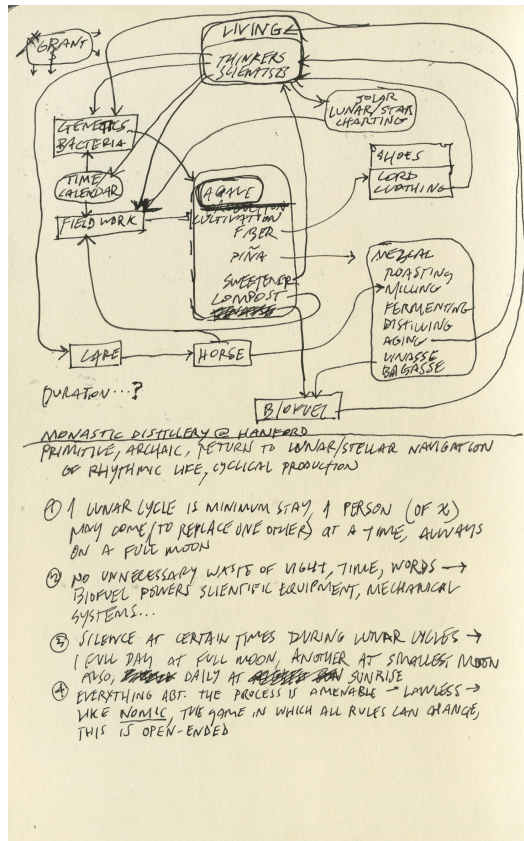 GRANT
$
LIVING
THINKERS
SCIENTISTS
SOLAR
LUNAR/STAR
CHARTING
GENETICS
BACTERIA
TIME/
CALENDAR
FIELD WORK
AGAVE
CULTIVATION
FIBER
PIÑA
SWEETENER
COMPOST
SHOES
CORD
CLOTHING
MEZCAL
ROASTING
MILLING
FERMENTING
DISTILLING
AGING
VINASSE
BAGASSE
CARE
HORSE
BIOFUEL
DURATION...?
MONASTIC DISTILLERY @ HANFORD
PRIMITIVE, ARCHAIC, RETURN TO LUNAR/STELLAR NAVIGATION
OF RHYTHMIC LIFE, CYCLICAL PRODUCTION
① 1 LUNAR CYCLE IS MINIMUM STAY, 1 PERSON (OF X)
MAY COME (TO REPLACE ONE OTHER) AT A TIME, ALWAYS
ON A FULL MOON
② NO UNNECESSARY WASTE OF LIGHT, TIME, WORDS →
BIOFUEL POWERS SCIENTIFIC EQUIPMENT, MECHANICAL
SYSTEMS...
③ SILENCE AT CERTAIN TIMES DURING LUNAR CYCLES →
1 FULL DAY AT FULL MOON, ANOTHER AT SMALLEST MOON
ALSO, DAILY AT SUNRISE
④ EVERYTHING ABT. THE PROCESS IS AMENABLE - LAWLESS →
LIKE NOMIC, THE GAME IN WHICH ALL RULES CAN CHANGE,
THIS IS OPEN-ENDED